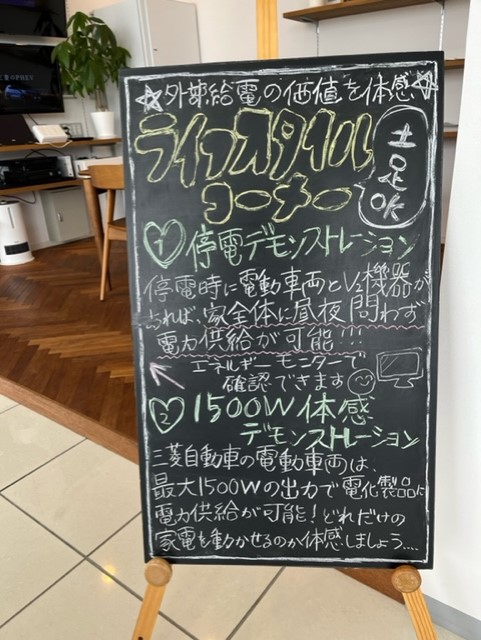 ☆外部給電の価値を体感☆
ライフスタイル
コーナー
土足OK
①停電デモンストレーション
停電時に電動車両とV2機器が
あれば、家全体に昼夜問わず
電力供給が可能!!!
エネルギーモニターで
確認できます
②1500W体感
デモンストレーション
三菱自動車の電動車両は、
最大1500Wの出力で電化製品に
電力供給が可能!どれだけの
家電を動かせるのか体感しましょう....